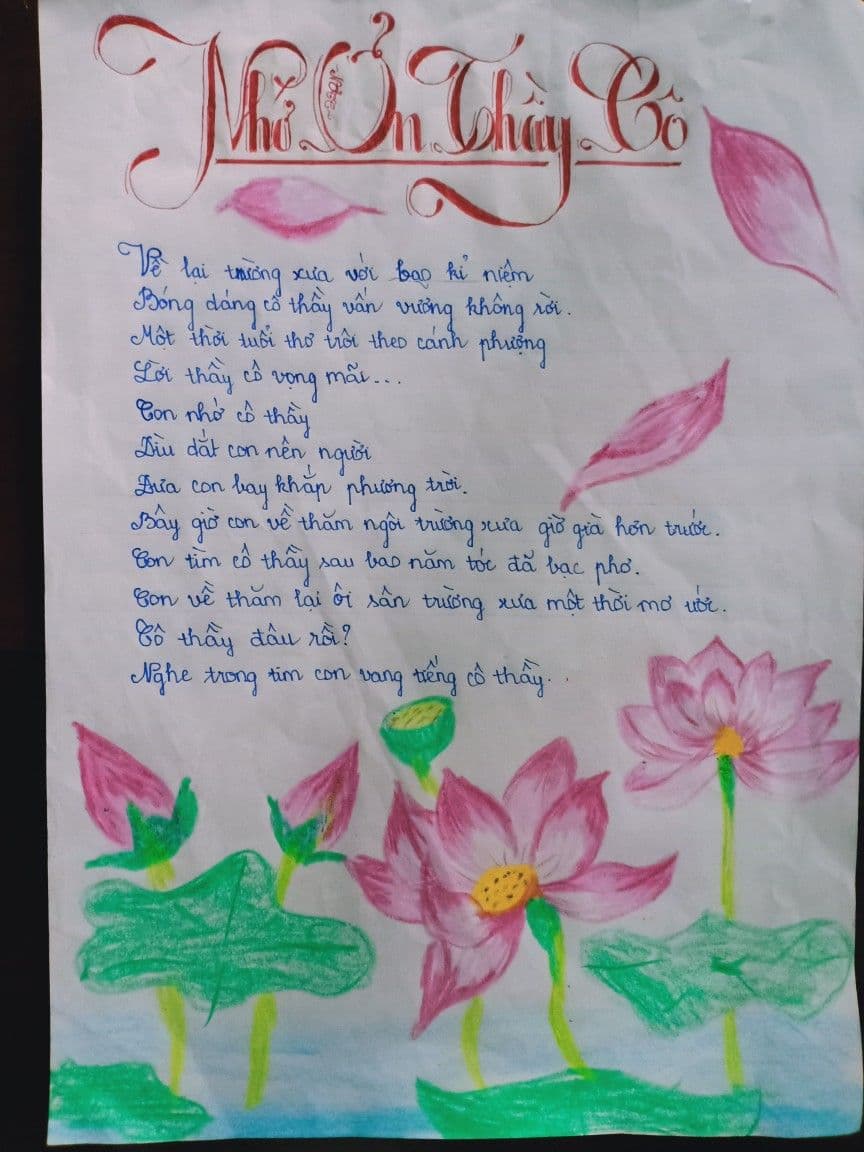 Nhớ Ơn Thầy Cô
Về lại trường xưa với bao kỉ niệm
Bóng dáng cô thầy vấn vương không rời.
Một thời tuổi thơ trôi theo cánh phượng
Lời thầy cô vọng mãi...
Con nhớ cô thầy
Dìu dắt con nên người
Đưa con bay khắp phương trời.
Bây giờ con về thăm ngôi trường xưa giờ già hơn trước.
Con tìm cô thầy sau bao năm tóc đã bạc phơ.
Con về thăm lại ôi sân trường xưa một thời mơ ước.
Cô thầy đâu rồi?
Nghe trong tim con vang tiếng cô thầy.